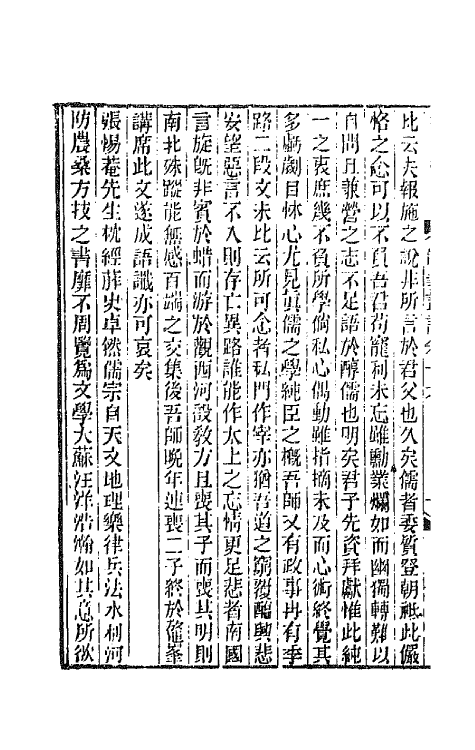 比云夫報施之說非所言於君父也久矣儒者委質登朝祗此儼
恪之念可以不負吾君苟寵利未忘雖勳業爛如而幽獨轉難以
自問且兼營之志不足語於醇儒也明矣君子先資拜獻惟此純
一之衷庶幾不負所學倘私心偶動雖指摘未及而心術終覺其
多虧劌目怵心尤見眞儒之學純臣之槪吾師又有政事冉有季
路二段文末比云所可念者私門作宰亦猶吾道之窮覆醢興悲
安望惡言不入則存亡異路誰能作太上之忘情更足悲者南國
言旋旣非賓於蜡而游於觀西河設敎方且喪其子而喪其明則
南北殊蹤能無感百端之交集後吾師晩年連喪二子終於龍峯
講席此文遂成語讖亦可哀矣
張惕菴先生枕經葄史卓然儒宗自天文地理樂律兵法水利河
防農桑方技之書靡不周覽爲文學大蘇汪洋浩瀚如其意所欲